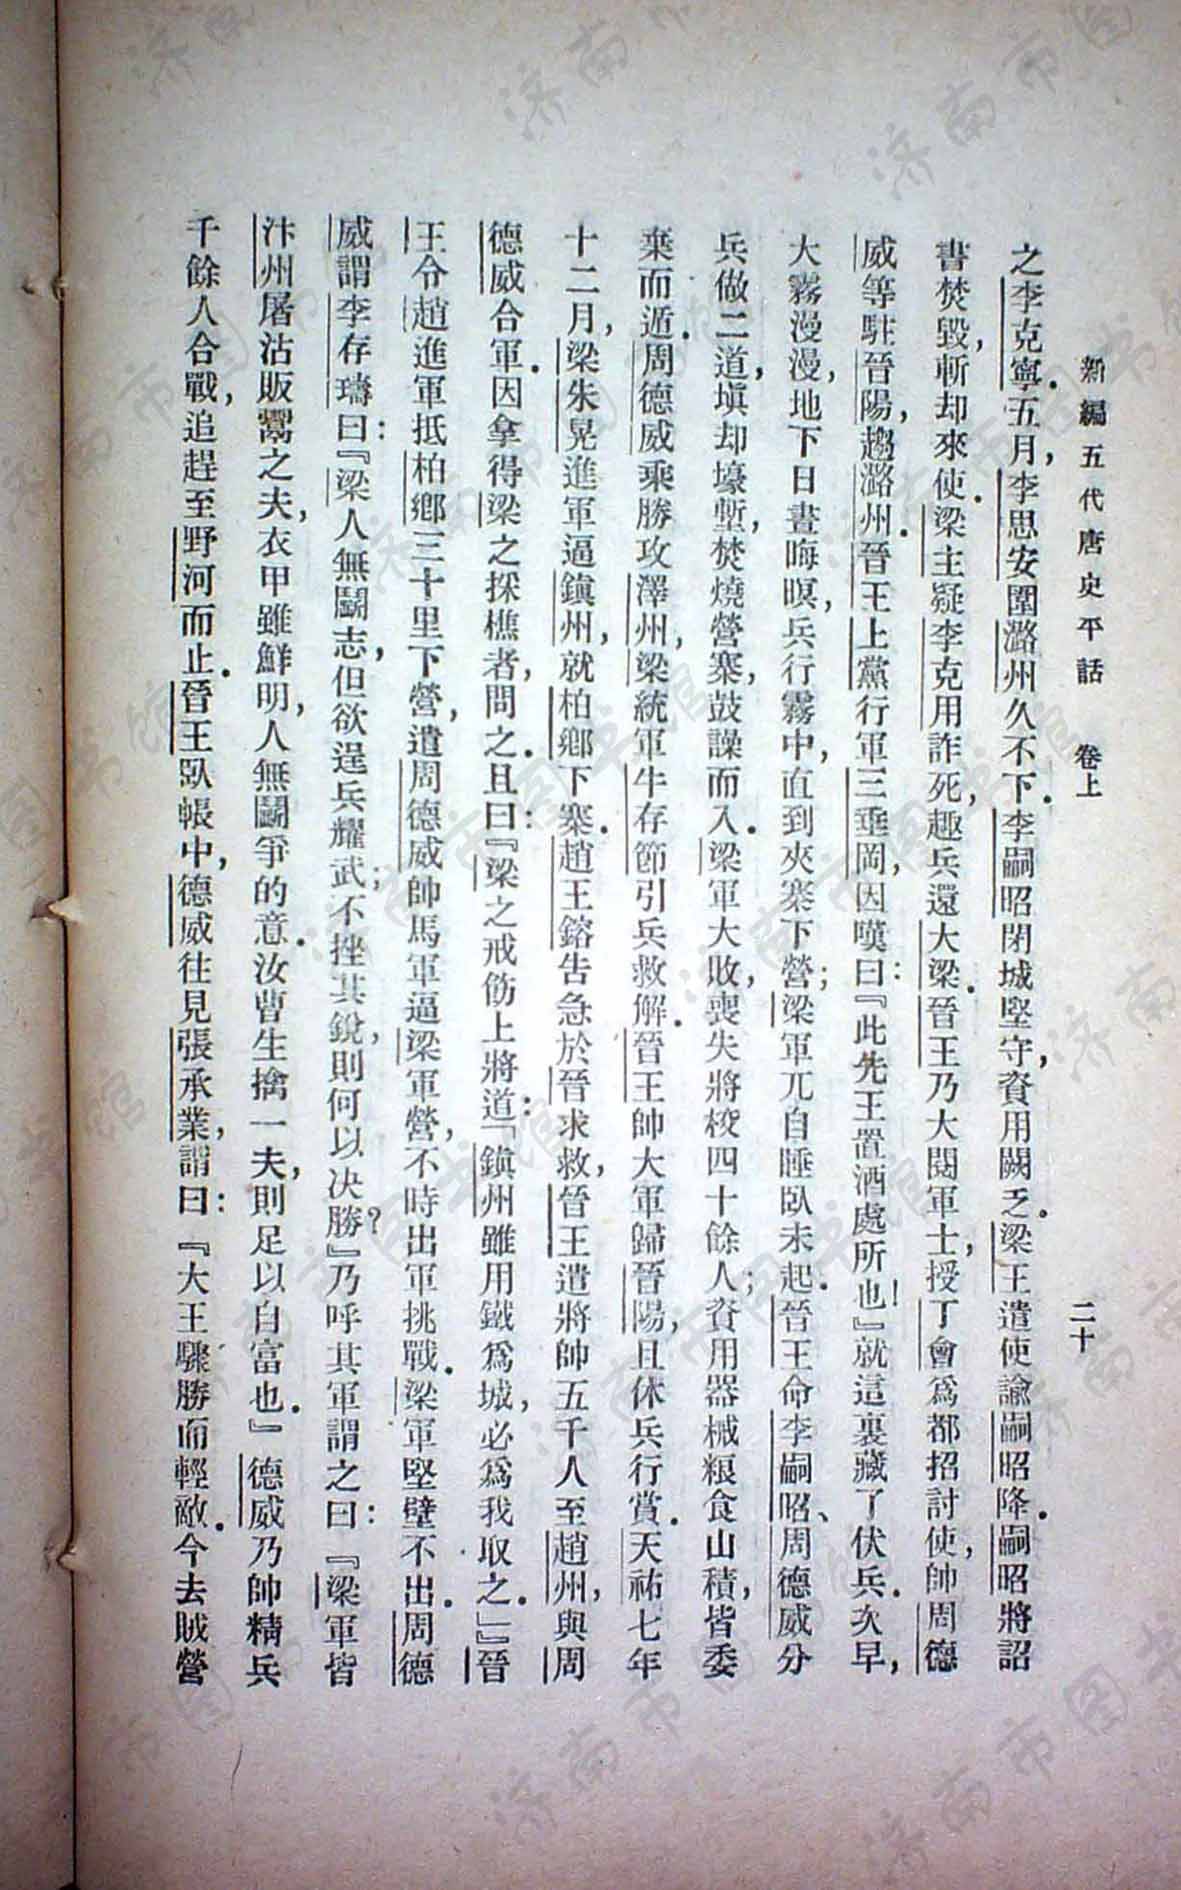 新編五代唐史平話　卷上　二十
之李克寧．五月，李思安圍潞州久不下．李嗣昭閉城堅守，資用闕乏．梁王遣使諭嗣昭降．嗣昭將詔
書焚毀，斬却來使．梁主疑李克用詐死，趣兵還大梁．晉王乃大閱軍士，授丁會爲都招討使，帥周德
威等駐晉陽，趨潞州．晉王上黨行軍三垂岡，因嘆曰：『此先王置酒處所也！』就這裏藏了伏兵．次早，
大霧漫漫，地下日晝晦暝，兵行霧中，直到夾寨下營；梁軍兀自睡臥未起．晉王命李嗣昭、周德威分
兵做二道，塡却壕塹，焚燒營寨，鼓譟而入．梁軍大敗，喪失將校四十餘人；資用器械粮食山積，皆委
棄而遁．周德威乘勝攻澤州，梁統軍牛存節引兵救解．晉王帥大軍歸晉陽，且休兵行賞．天祐七年
十二月，梁朱晃進軍逼鎭州，就柏鄉下寨．趙王鎔告急於晉求救，晉王遣將帥五千人至趙州，與周
德威合軍．因拿得梁之採樵者，問之．且曰：『梁之戒飭上將道：「鎭州雖用鐵爲城，必爲我取之．」』晉
王令趙進軍抵柏鄉三十里下營，遣周德威帥馬軍逼梁軍營，不時出軍挑戰．梁軍堅壁不出．周德
威謂李存璹曰：『梁人無鬭志，但欲逞兵耀武；不挫其銳，則何以决勝？』乃呼其軍謂之曰：『梁軍皆
汴州屠沽販鬻之夫，衣甲雖鮮明，人無鬭爭的意．汝曹生擒一夫，則足以自富也．』德威乃帥精兵
千餘人合戰，追趕至野河而止．晉王臥帳中，德威往見張承業，謂曰：『大王驟勝而輕敵．今去賊營